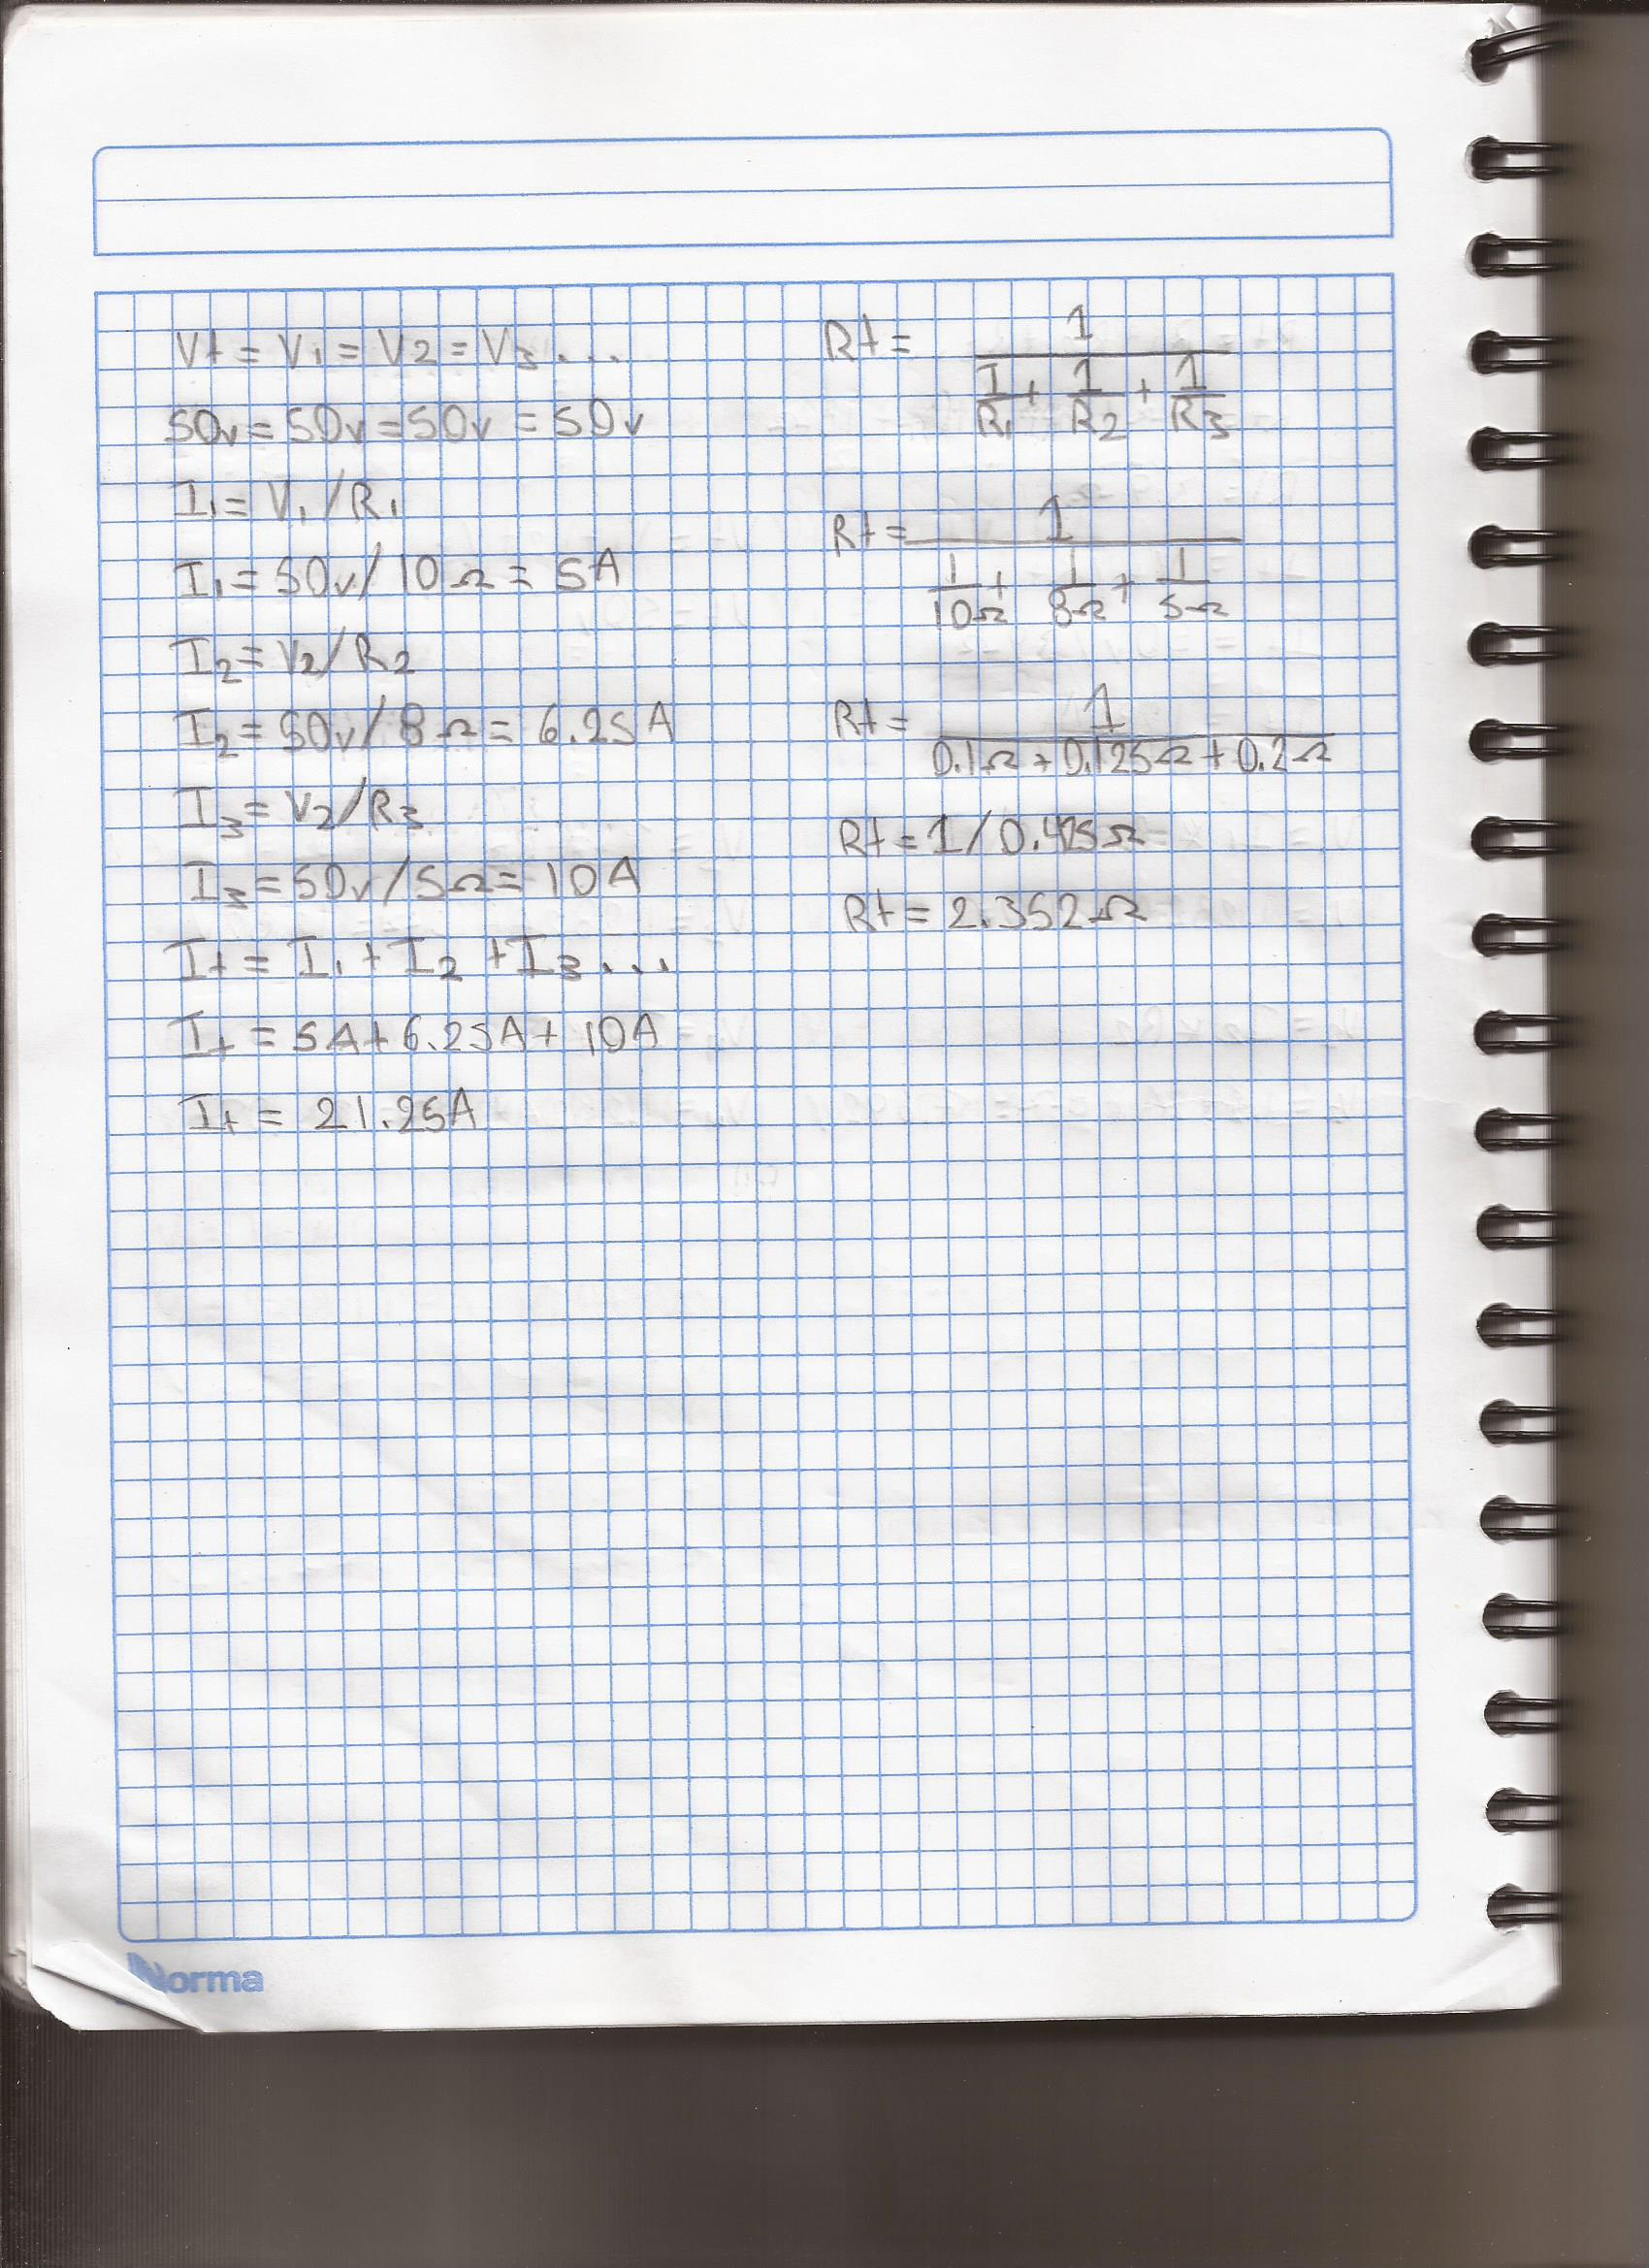 Vt = V1 = V2 = V3 ...
50v = 50v = 50v = 50v
I1 = V1 / R1
I1 = 50v / 10Ω = 5A
I2 = V2 / R2
I2 = 50v / 8Ω = 6.25A
I3 = V2 / R3
I3 = 50v / 5Ω = 10A
It = I1 + I2 + I3 ...
It = 5A + 6.25A + 10A
It = 21.25A
Rt = 1
1/R1 + 1/R2 + 1/R3
Rt = 1
1/10Ω + 1/8Ω + 1/5Ω
Rt = 1
0.1Ω + 0.125Ω + 0.2Ω
Rt = 1 / 0.425Ω
Rt = 2.352Ω
Norma